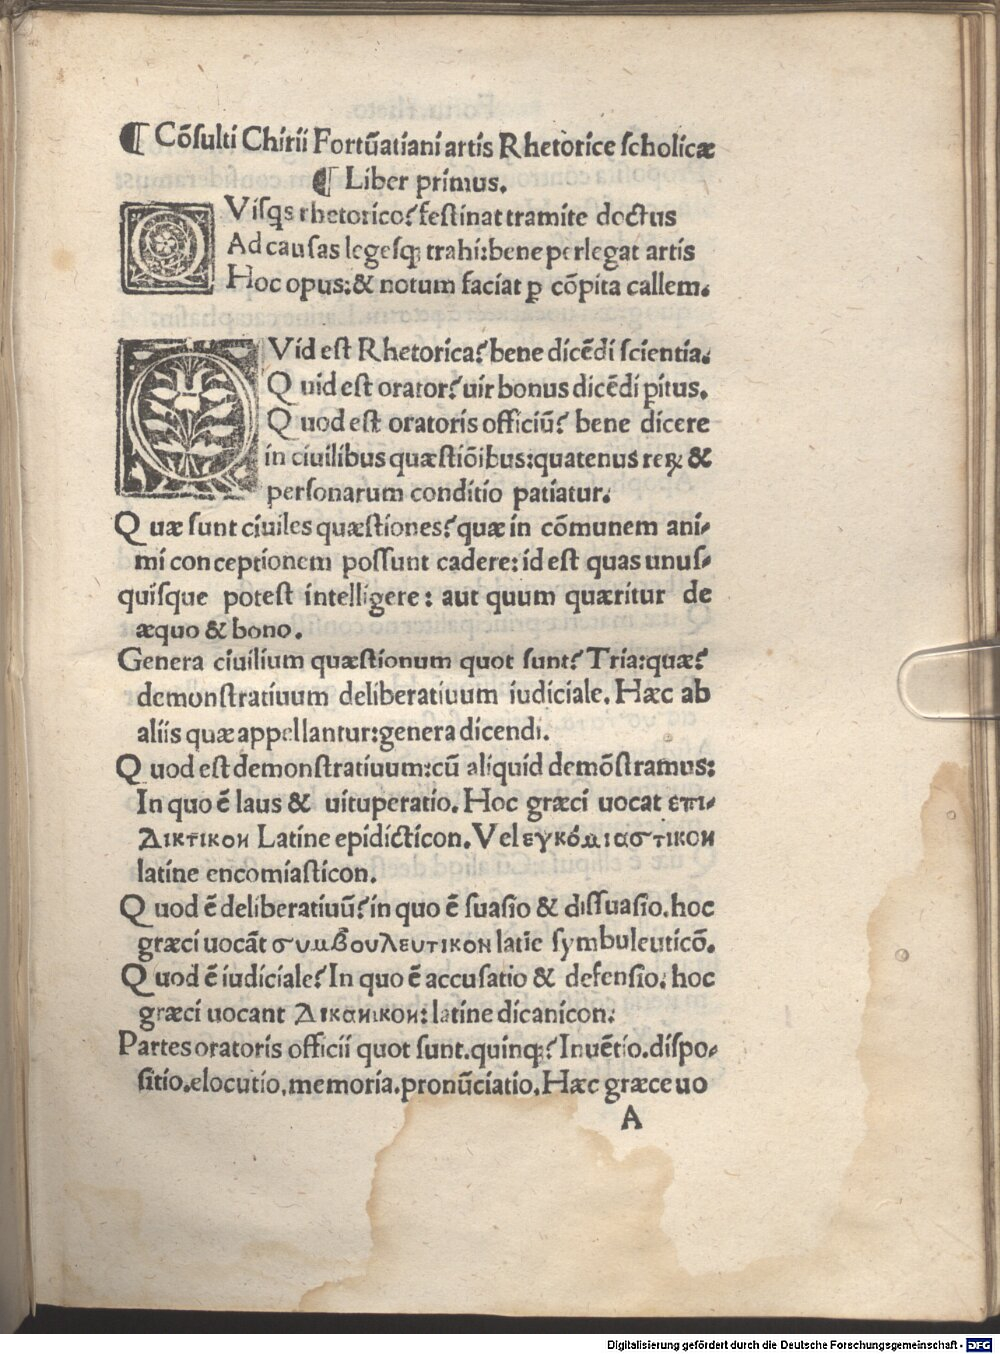 ¶ Cõsulti Chirii Fortũatiani artis Rhetorice scholicæ
¶ Liber primus.
QVisqs rhetorico? festinat tramite doctus
Ad causas legesq; trahi: bene perlegat artis
Hoc opus: & notum faciat ꝑ cõpita callem.
QVid est Rhetorica? bene dicẽdi scientia.
Quid est orator? uir bonus dicẽdi pitus.
Quod est oratoris officiũ? bene dicere
in ciuilibus quæstiõibus: quatenus reꝝ &
personarum conditio patiatur.
Quæ sunt ciuiles quæstiones? quæ in cõmunem ani-
mi conceptionem possunt cadere: id est quas unus-
quisque potest intelligere: aut quum quæritur de
æquo & bono.
Genera ciuilium quæstionum quot sunt? Tria: quæ?
demonstratiuum deliberatiuum iudiciale. Hæc ab
aliis quæ appellantur: genera dicendi.
Quod est demonstratiuum: cũ aliquid demõstramus:
In quo ẽ laus & uituperatio. Hoc græci uocat επι-
Δικτικον Latine epidicticon. Vel εγκόμιαστικον
latine encomiasticon.
Quod ẽ deliberatiuũ? in quo ẽ suasio & dissuasio. hoc
græci uocãt συμβουλευτικον latie symbuleuticõ.
Quod ẽ iudiciale? In quo ẽ accusatio & defensio: hoc
græci uocant Δικανικον: latine dicanicon.
Partes oratoris officii quot sunt. quinq;? Inuẽtio. dispo-
sitio. elocutio. memoria. pronũciatio. Hæc græce uo
A
Digitalisierung gefördert durch die Deutsche Forschungsgemeinschaft - DFG